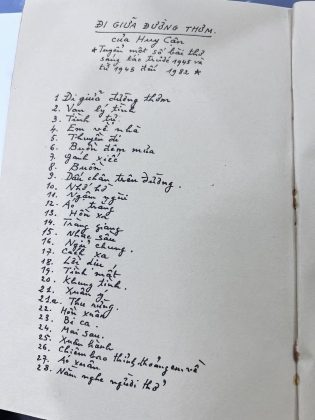 ĐI GIỮA ĐƯỜNG THƠM.
của Huy Cận
* Tuyển một số bài thơ
sáng tác trước 1945 và
từ 1945 đến 1982 *
1 Đi giữa đường thơm
2. Vạn lý tình
3. Tình tự
4. Em về nhà
5. Thuyền đi
6. Buồn đêm mưa
7. Gánh xiếc
8. Buồn
9. Dấu chân trên đường.
10. Nhớ hờ
11. Ngậm ngùi
12. Áo trắng
13. Hồn xa
14. Tràng giang
15. Nhạc sầu
16. Ngủ chung
17. Cách xa
18. Lời dịu
19. Tình mất
20. Khung tình.
21. Xuân ý
21.a. Thu rừng.
22. Hồn xuân
23. Bi ca.
24. Mai sau.
25. Xuân hành
26. Chiêm bao thỉnh thoảng em về
27. Áo xuân
28. Nằm nghe người thở